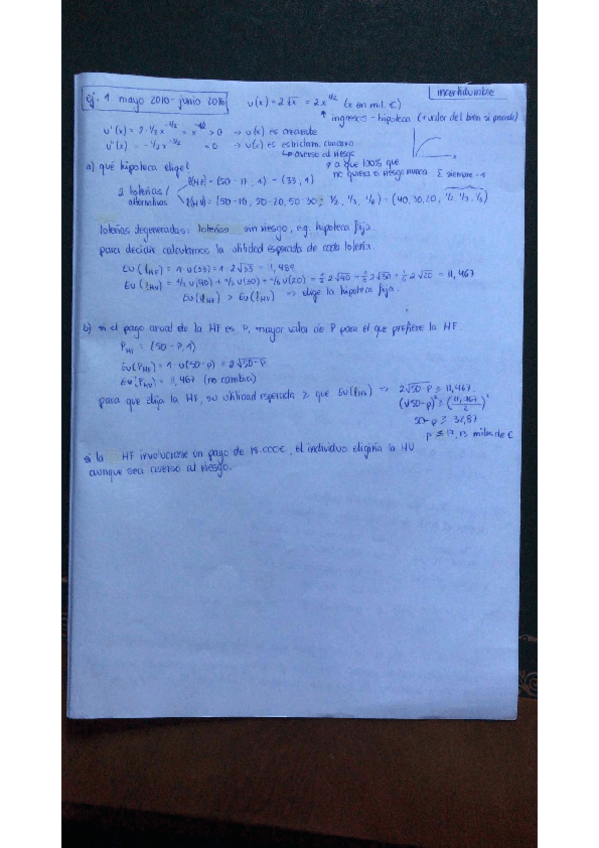 ej. 1 mayo 2010 - junio 2016
u(x) = 2√x = 2x^1/2 (x en mil. €)
incertidumbre
ingresos - hipoteca (+ valor del bien si procede)
u'(x) = 2·1/2 x^-1/2 = x^-1/2 > 0 → u(x) es creciente
u''(x) = -1/2 x^-3/2 < 0 → u(x) es estrictam. cóncava
↳ averso al riesgo
a) qué hipoteca elige?
no quiera o riesgo nunca Σ siempre = 1
2 loterías / alternativas
l(HF) = (50 - 17, 1) = (33, 1)
l(HV) = (50-10, 50-20, 50-30 ; 1/2, 1/3, 1/6) = (40, 30, 20, 1/2, 1/3, 1/6)
loterías degeneradas: loterías sin riesgo, e.g. hipoteca fija.
para decidir calculamos la utilidad esperada de cada lotería.
EU(lHF) = 1·u(33) = 1·2√33 = 11,489
EU(lHV) = 1/2 u(40) + 1/3 u(30) + 1/6 u(20) = 1/2 2√40 + 1/3 2√30 + 1/6 2√20 = 11,467
EU(lHF) > EU(lHV) ⇒ elige la hipoteca fija.
b) si el pago anual de la HF es P, mayor valor de P para el que prefiere la HF.
PHF = (50 - P, 1)
EU(PHF) = 1·u(50-p) = 2√50-P
EU(PHV) = 11,467 (no cambia)
para que elija la HF, su utilidad esperada ≥ que EU(lHV) ⇒ 2√50-P ≥ 11,467
(√50-p)² ≥ (11,467/2)²
50-p ≥ 32,87
p ≤ 17,13 miles de €
si la HF involucrase un pago de 18.000€, el individuo elegiría la HV
aunque sea averso al riesgo.